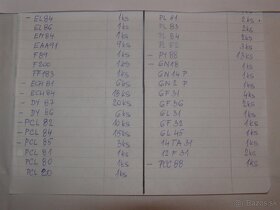 - EL84 1ks
EL86 1ks
EM84 1ks
EAA91 9ks
F89 1ks
F200 1ks
FF183 1ks
- ECH81 6ks
- ECH84 18ks
- DY 87 20ks
- DY 86 6ks
- PCL 82 10ks
- PCL 84 15ks
PCL 85 3ks
PCL 81 1ks
PCL 80 1ks
PCL 1ks
PL 81
PL 83
PL 84 2ks
PL 82 3ks
- PY 88 13ks
- GN18 1ks
GN 14 P 1ks
GN 2 P 1ks
GF 31 1ks
GF 36 2ks
GL 31 1ks
GF 32 1ks
GL 45 1ks
14 TA 31 1ks
12 F 31 2ks
- PCC 88 1ks
bazar.sk